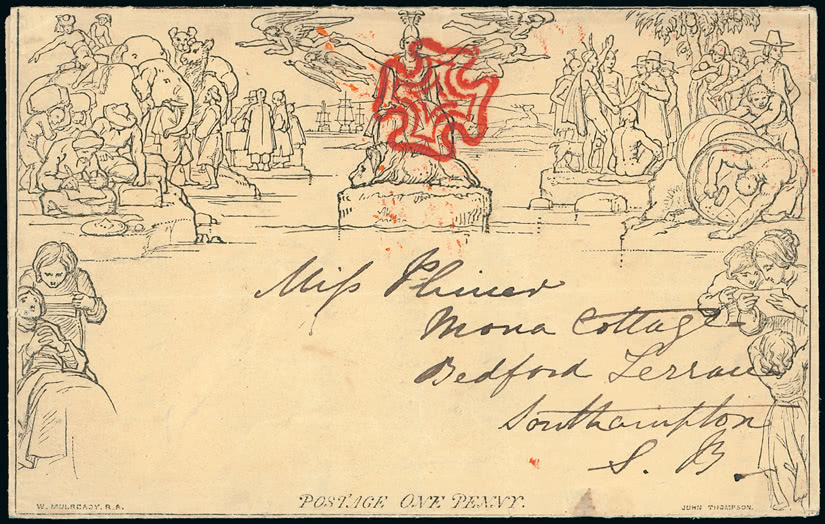 Miss
Mona Cottage
Bedford Terrace
Southampton
S. B.
POSTAGE ONE PENNY.
W. MULREADY, R.A.
JOHN THOMPSON.